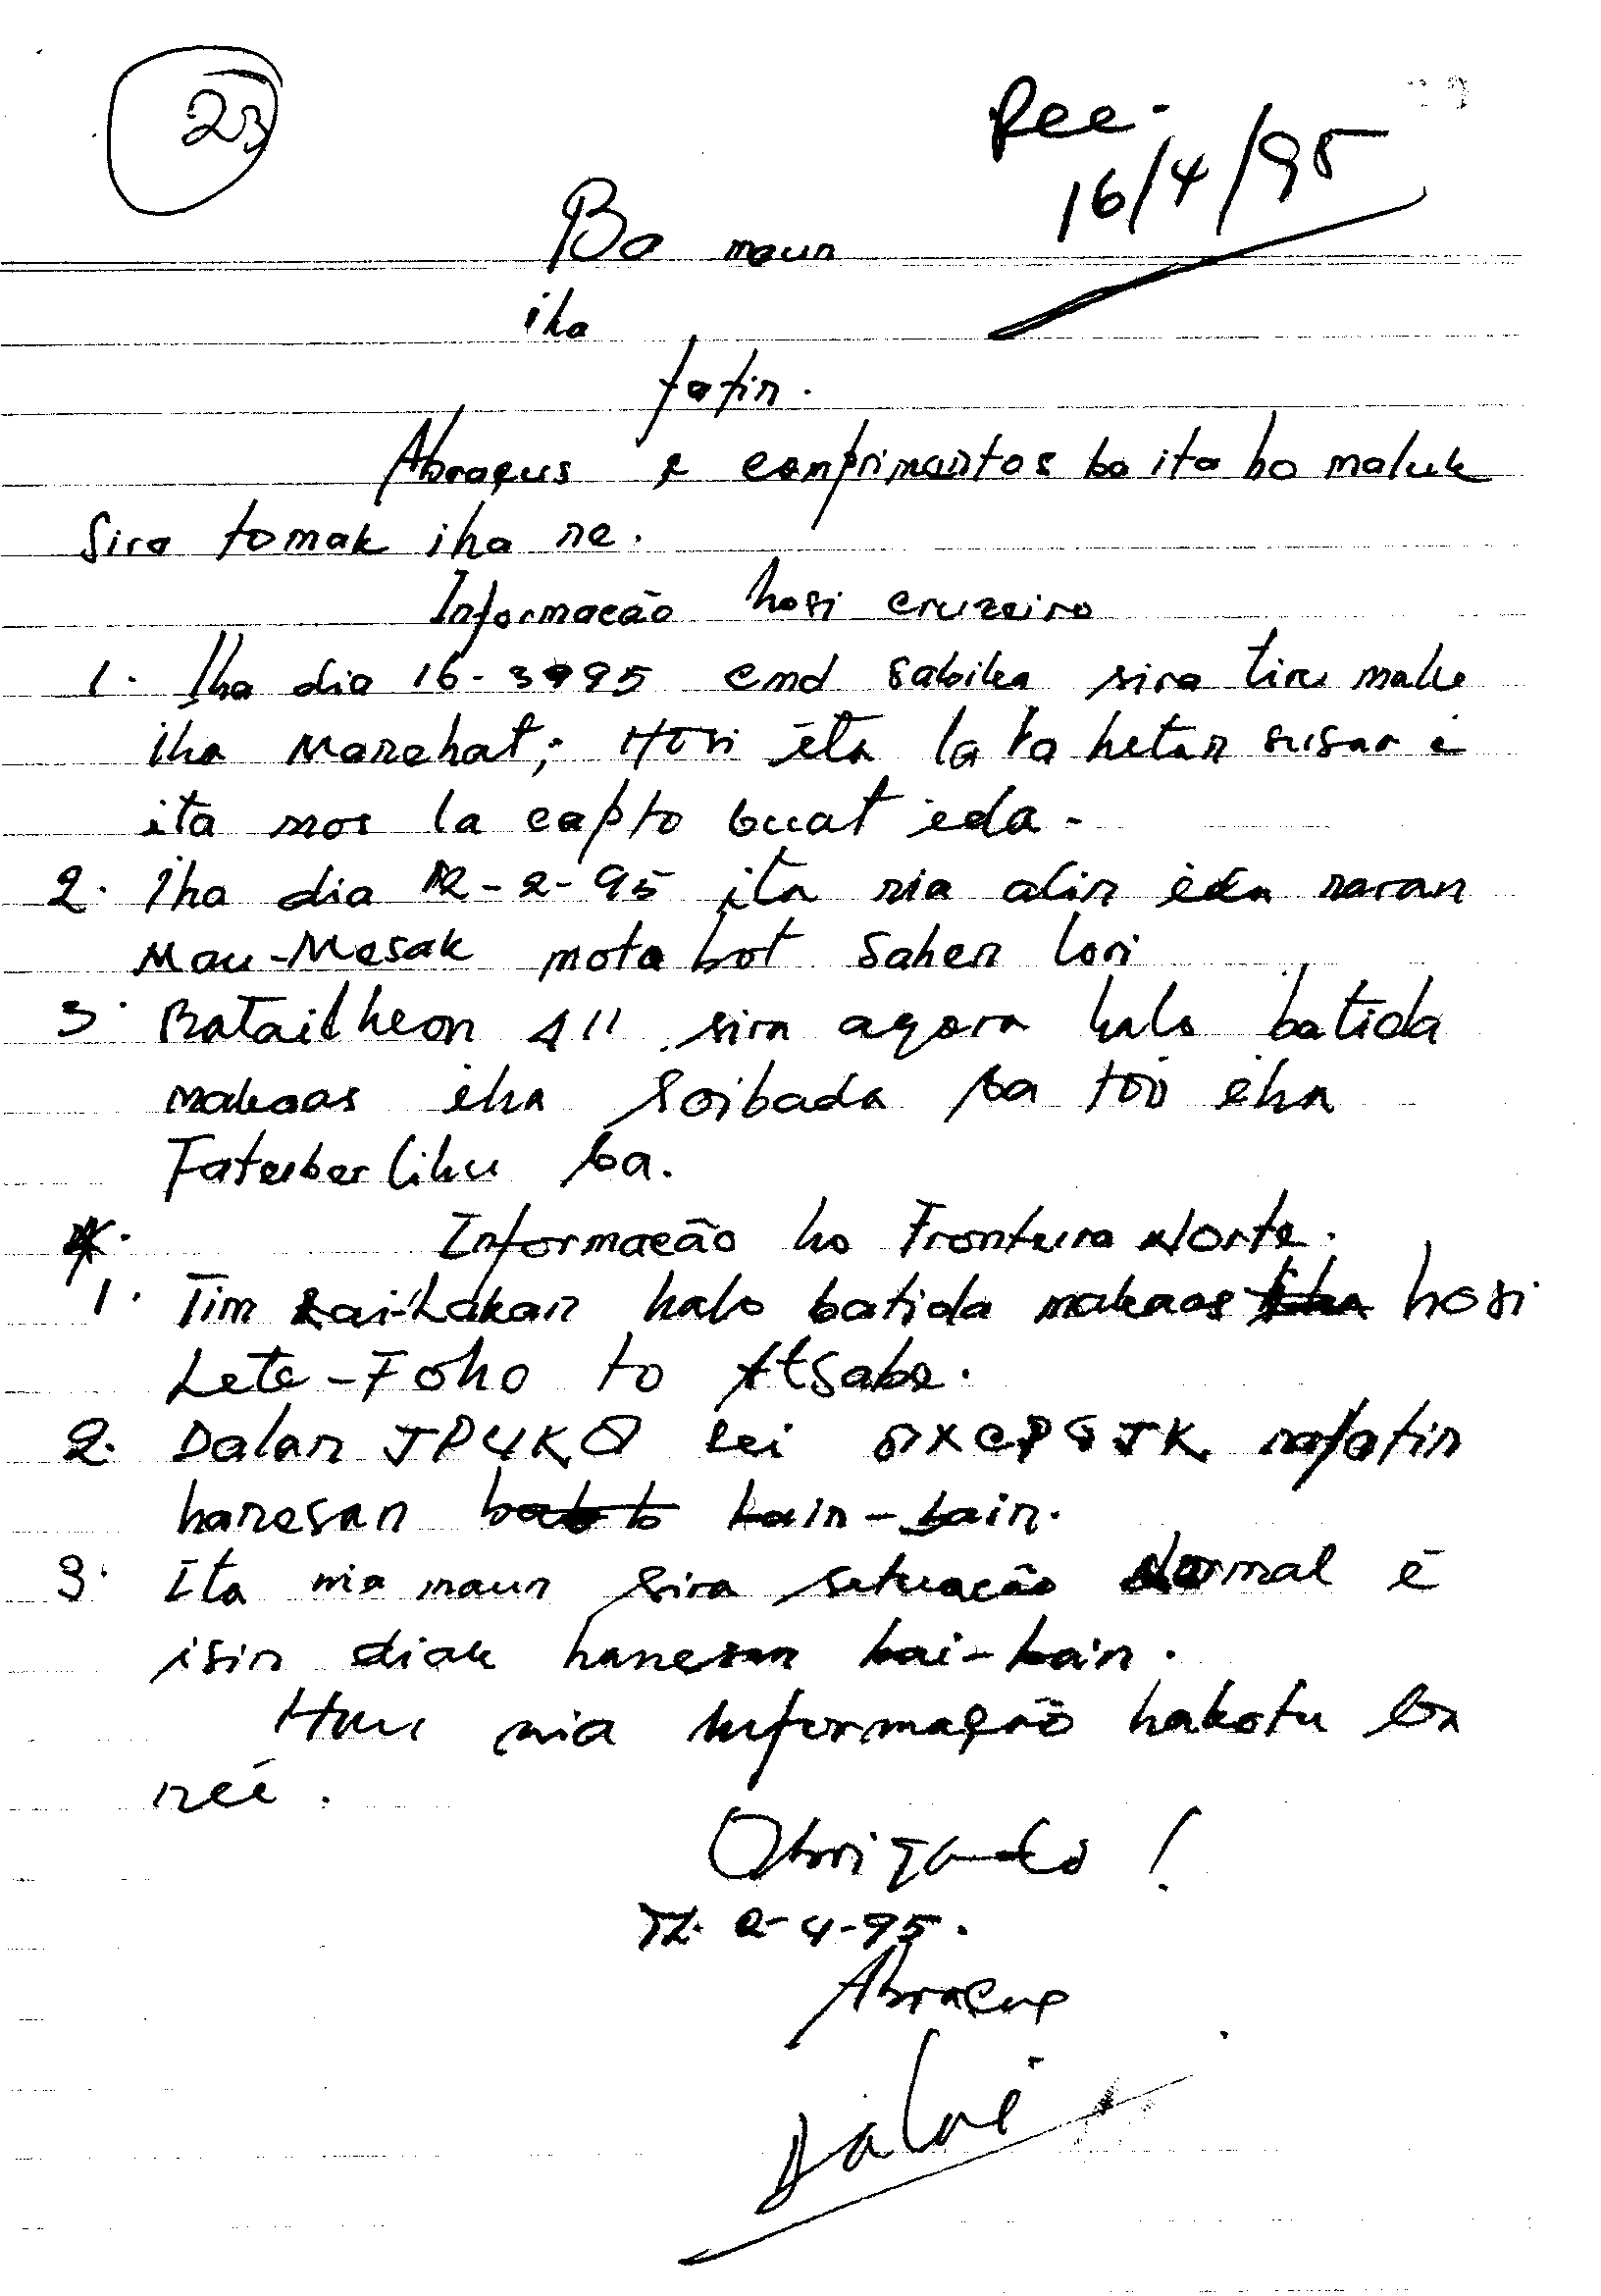 23
Rec.
16/4/95
Ba maun
iha
fatin.
Abraçus e comprimentos ba ita bo maluk
sira tomak iha ne.
Informacão hosi cruzeiro
1. Iha dia 16-3-95 cmd Sabika sira tiru malu
iha Marehat; Hosi ita la to hetan susar i
ita mos la capto buat ida.
2. Iha dia 12-2-95 ita nia alin ida naran
Mau-Mesak mota bot Sahen lori
3. Batailheon 411 sira agora halo batida
makaas iha Soibada ba too iha
Fatuberlihu ba.
Informacão ho Fronteira Norte.
1. Tim Rai-Lakan halo batida makaas hosi
Lete-Foho to Atsabe.
2. Dalan JP4KO sei nafatin
hanesan bain-bain.
3. Ita nia maun sira setuacão Normal é
isin diak hanesan bai-bain.
Hau nia informação hakotu ba
neé.
Obrigado!
TL. 2-4-95.
Abraçus